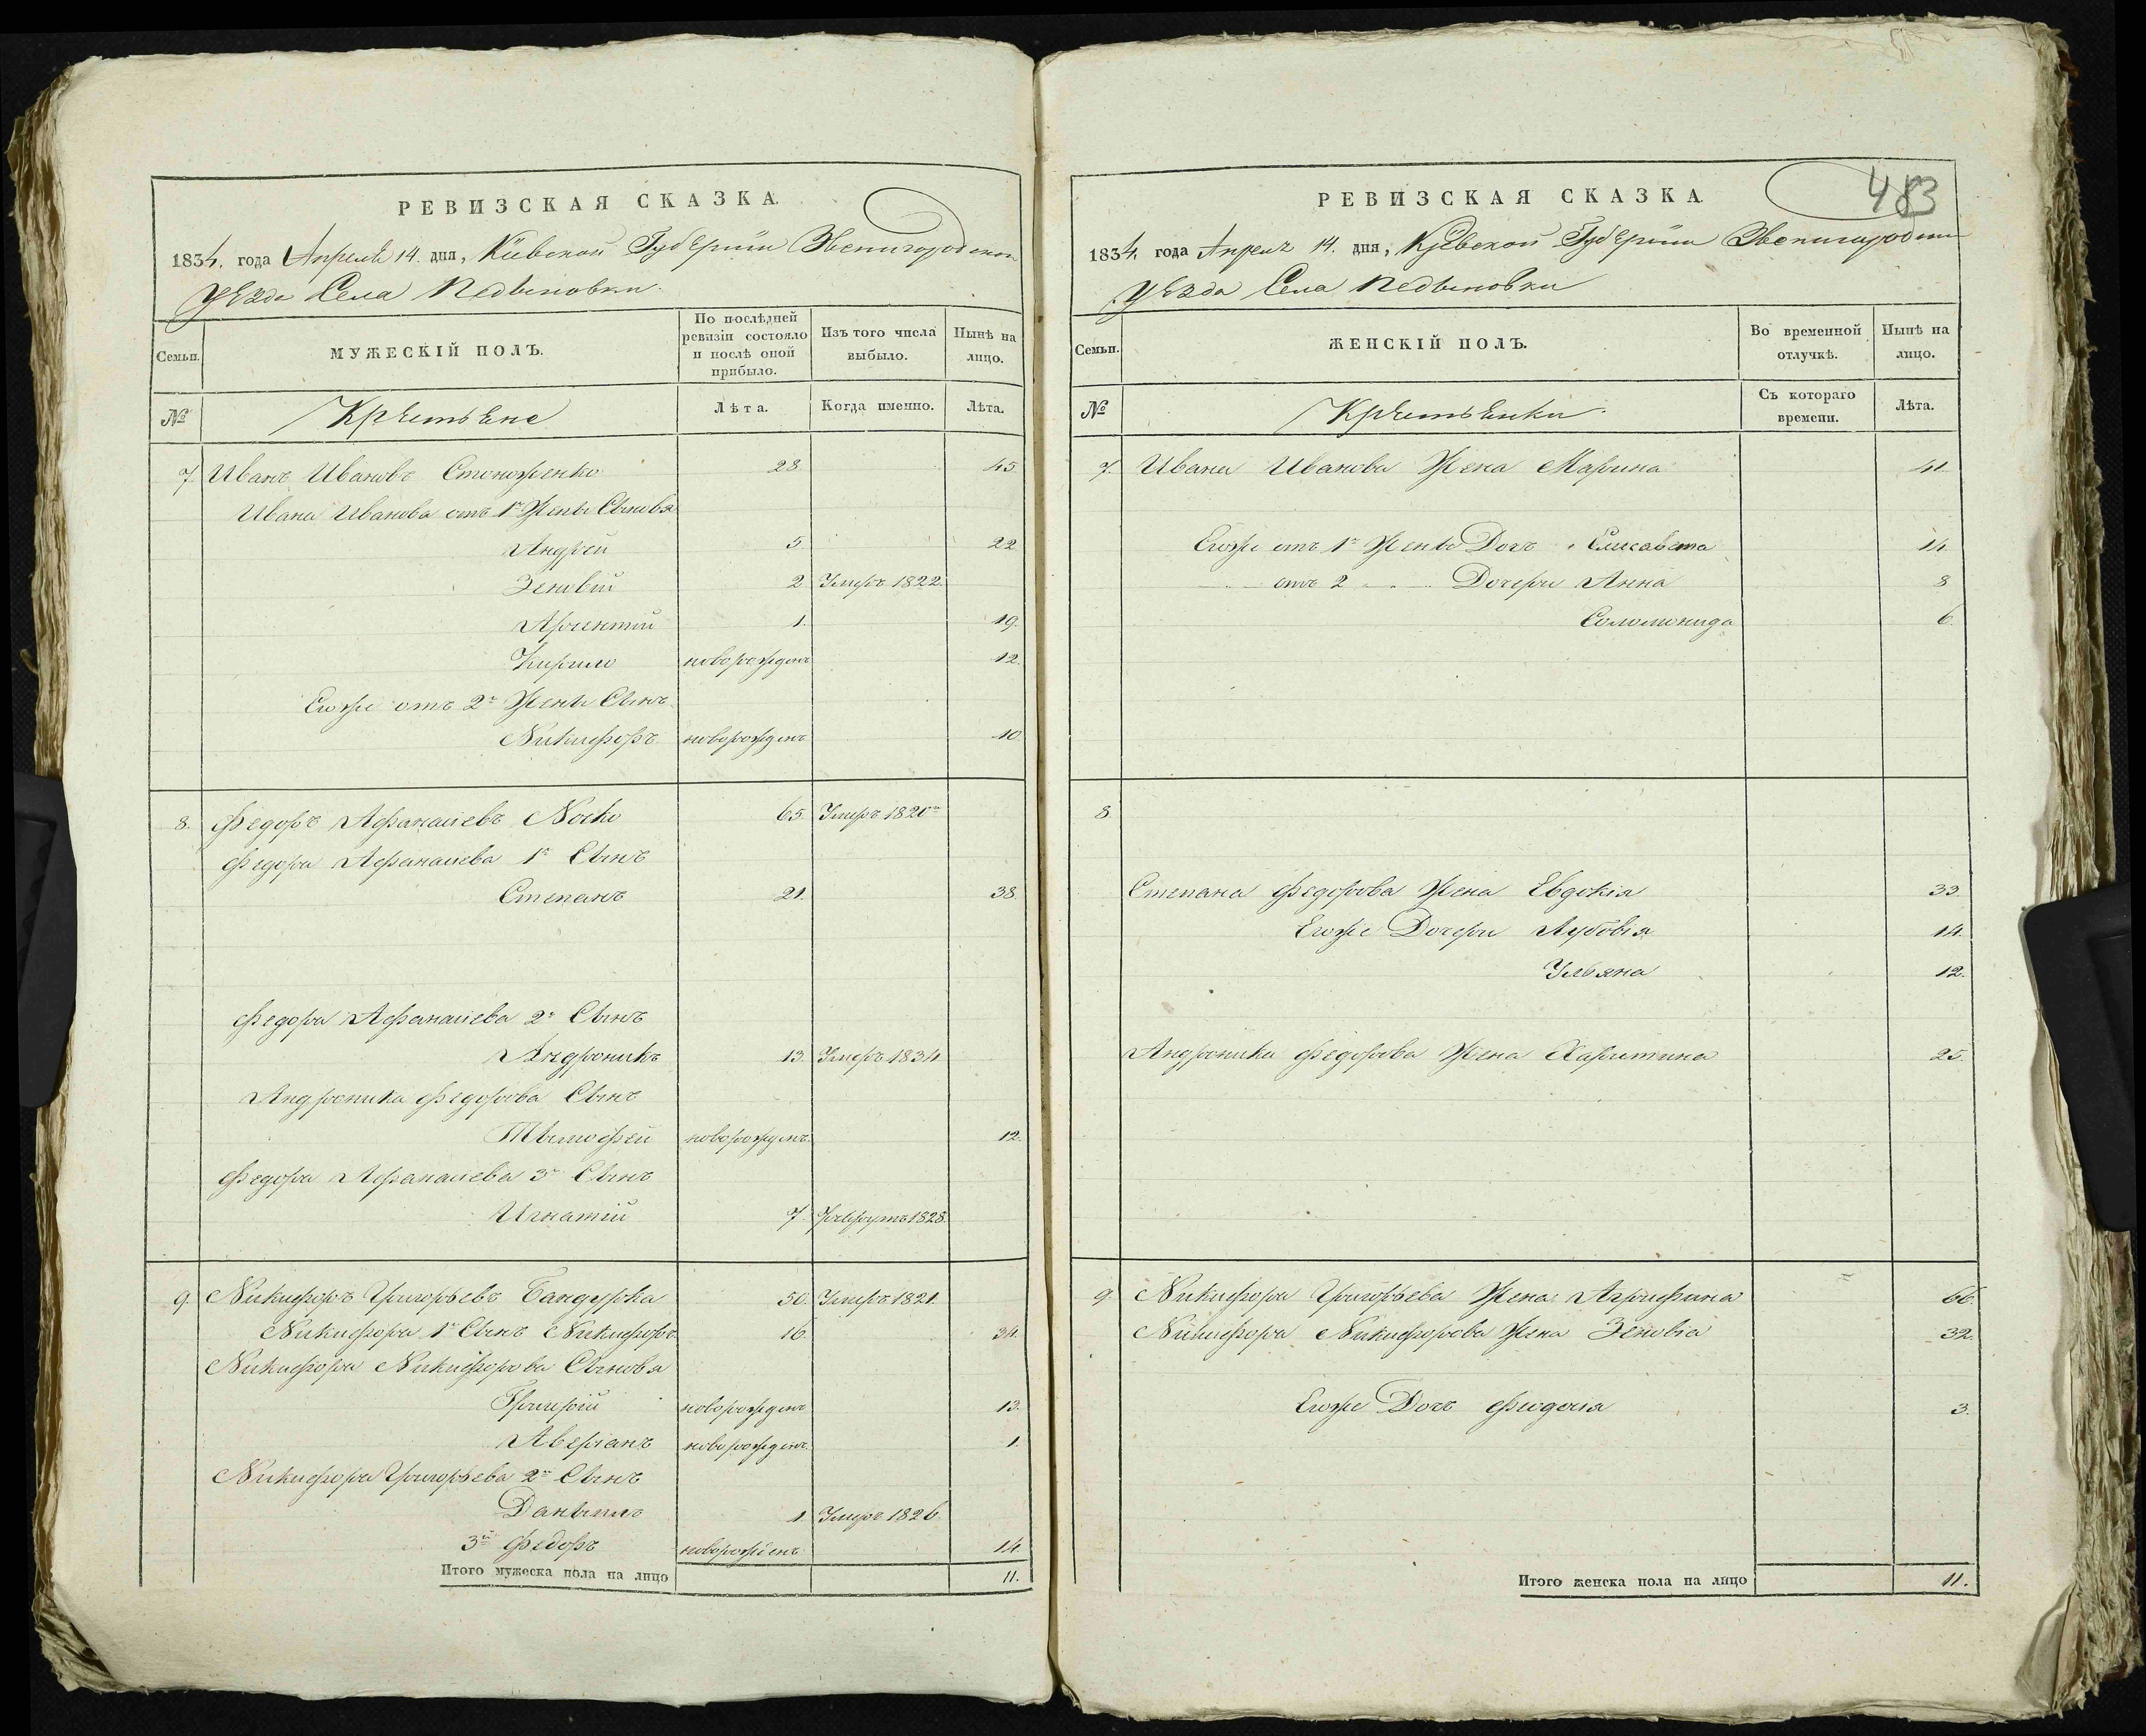 РЕВИЗСКАЯ СКАЗКА.
1834. года Апреля 14. дня, Кіевской Губерніи Звенигородскои
уезда Села Педыновки.
Семьи.
МУЖЕСКІЙ ПОЛЪ.
По послѣдней ревизіи состояло и послѣ оной прибыло.
Изъ того числа выбыло.
Нынѣ на лицо.
№
Крестьене
Лѣта.
Когда именно.
Лѣта.
7. Иванъ Ивановъ 28. 45
Ивана Иванова отъ 1й Жены Сыновя
Андрей 5. 22
Зеновій 2 Умеръ 1822.
Арсентій 1. 19.
Кирило новорожденъ 12.
Егоже отъ 2й Жены Сынъ
Никифоръ новорожденъ 10.
8. Федоръ Афанасіевъ Носко 65. Умеръ
Федора Афанасіева 1й Сынъ
Степанъ 21. 38.
Федора Афанасіева 2й Сынъ
Андроникъ 13. Умеръ 1834
Андроника Федорова Сынъ
Тымофей новорожденъ. 12.
Федора Афанасіева 3й Сынъ
Игнатій 7. Рекрутъ 1828.
9. Никифоръ Григорьевъ Бандурка 50. Умеръ 1821.
Никифора 1й Сынъ Никифоръ 16. 34.
Никифора Никифорова Сыновя
Григорій новорожденъ 13.
Аверіанъ новорожденъ. 1.
Никифора Григорьева 2й Сынъ
Данылъ 1. Умеръ 1826.
3й Федоръ новорожденъ 14.
Итого мужеска пола на лицо 11.
483
РЕВИЗСКАЯ СКАЗКА.
1834. года Апреля 14. дня, Кіевской Губерніи Звенигородскои
уезда Села Педыновки
Семьи.
ЖЕНСКІЙ ПОЛЪ.
Во временной отлучкѣ.
Нынѣ на лицо.
№
Крестьенки.
Съ котораго времени.
Лѣта.
7. Ивана Иванова Жена Марина 41.
Егоже отъ 1й Жены Дочъ Елисавета 14.
отъ 2 Дочери Анна 8
Соломонида 6.
8.
Степана Федорова Жена Евдокія 33.
Егоже Дочери Лубовія 14.
Ульяна 12.
Андроника Федорова Жена Харитина 25.
9. Никифора Григорьева Жена Агрифина 66.
Никифора Никифорова Жена Зеновіа 32.
Егоже Дочъ Феодосія 3.
Итого женска пола на лицо 11.